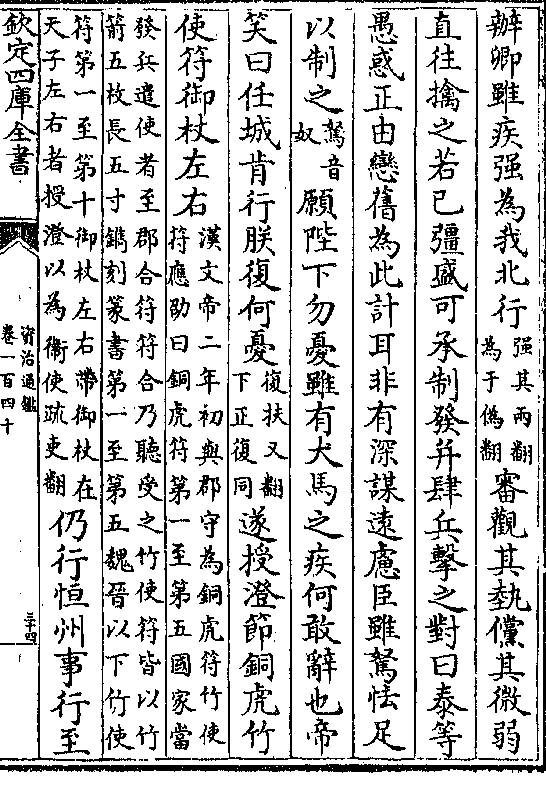 辦卿雖疾强為我北行强其兩翻為于偽翻審觀其埶儻其微弱
直往擒之若已彊盛可承制發并肆兵擊之對曰泰等
愚惑正由戀舊為此計耳非有深謀遠慮臣雖駑怯足
以制之駑音奴願陛下勿憂雖有犬馬之疾何敢辭也帝
笑曰任城肯行朕復何憂復扶又翻下正復同遂授澄節銅虎竹
使符御杖左右漢文帝二年初與郡守為銅虎符竹使符應劭曰銅虎符第一至第五國家當
發兵遣使者至郡合符符合乃聽受之竹使符皆以竹
箭五枚長五寸鐫刻篆書第一至第五魏晉以下竹使
符第一至第十御杖左右帶御杖在
天子左右者授澄以為衞使疏吏翻仍行恒州事行至
欽定四庫全書
資治通鑑
卷一百四十
三十四